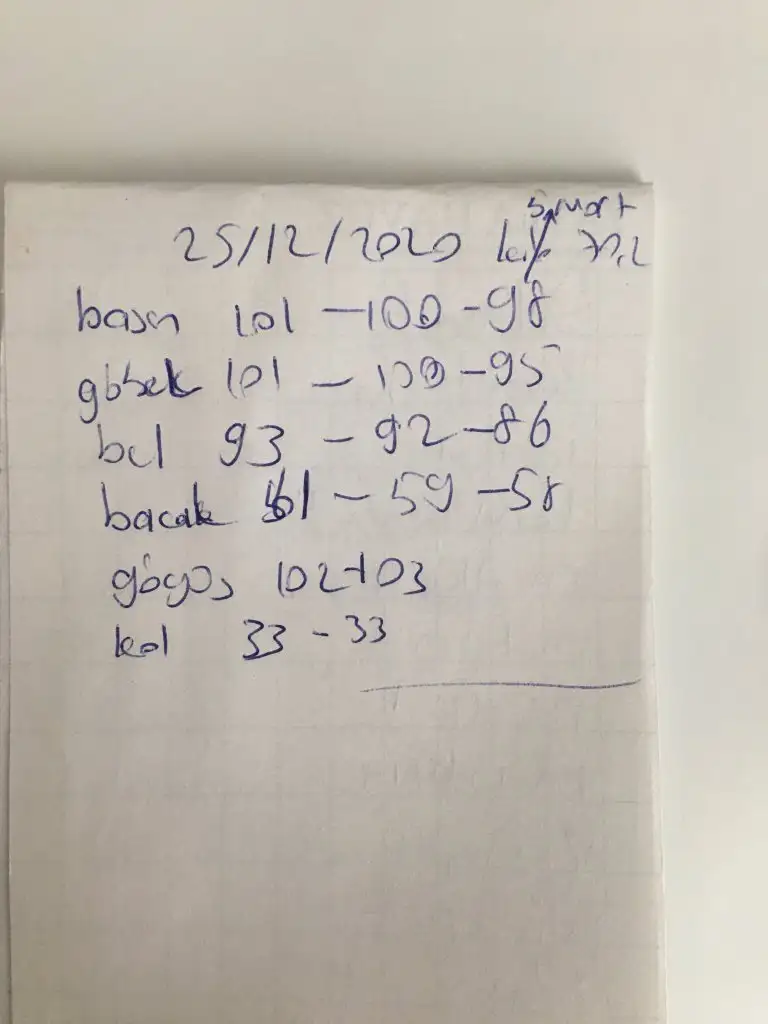 5 mart
25/12/2020
basen 101 - 100 - 98
göbek 101 - 100 - 95
bel 93 - 92 - 86
bacak 61 - 59 - 58
göğüs 102 - 103
kol 33 - 33